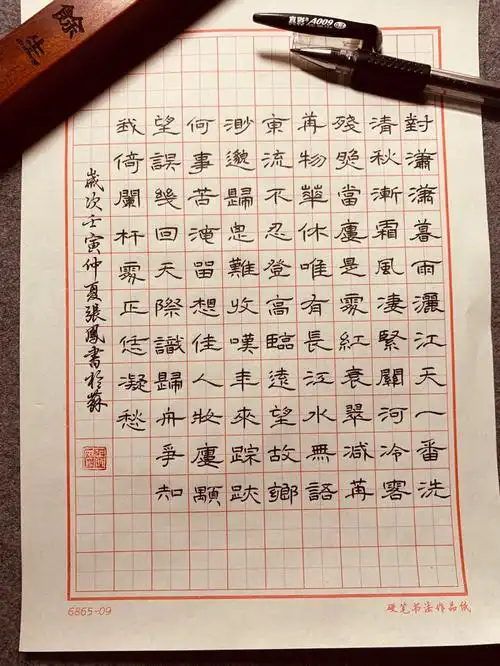 餘生
真彩 A009
對瀟瀟暮雨灑江天一番洗
清秋漸霜風凄緊關河冷落
殘照當樓是處紅衰翠減苒
苒物華休唯有長江水無語
東流不忍登高臨遠望故鄉
渺邈歸思難收嘆年來踪跡
何事苦淹留想佳人妝樓顒
望誤幾回天際識歸舟爭知
我倚闌杆處正恁凝愁
歲次壬寅仲夏張鳳書於蘇
6865-09
硬笔书法作品纸